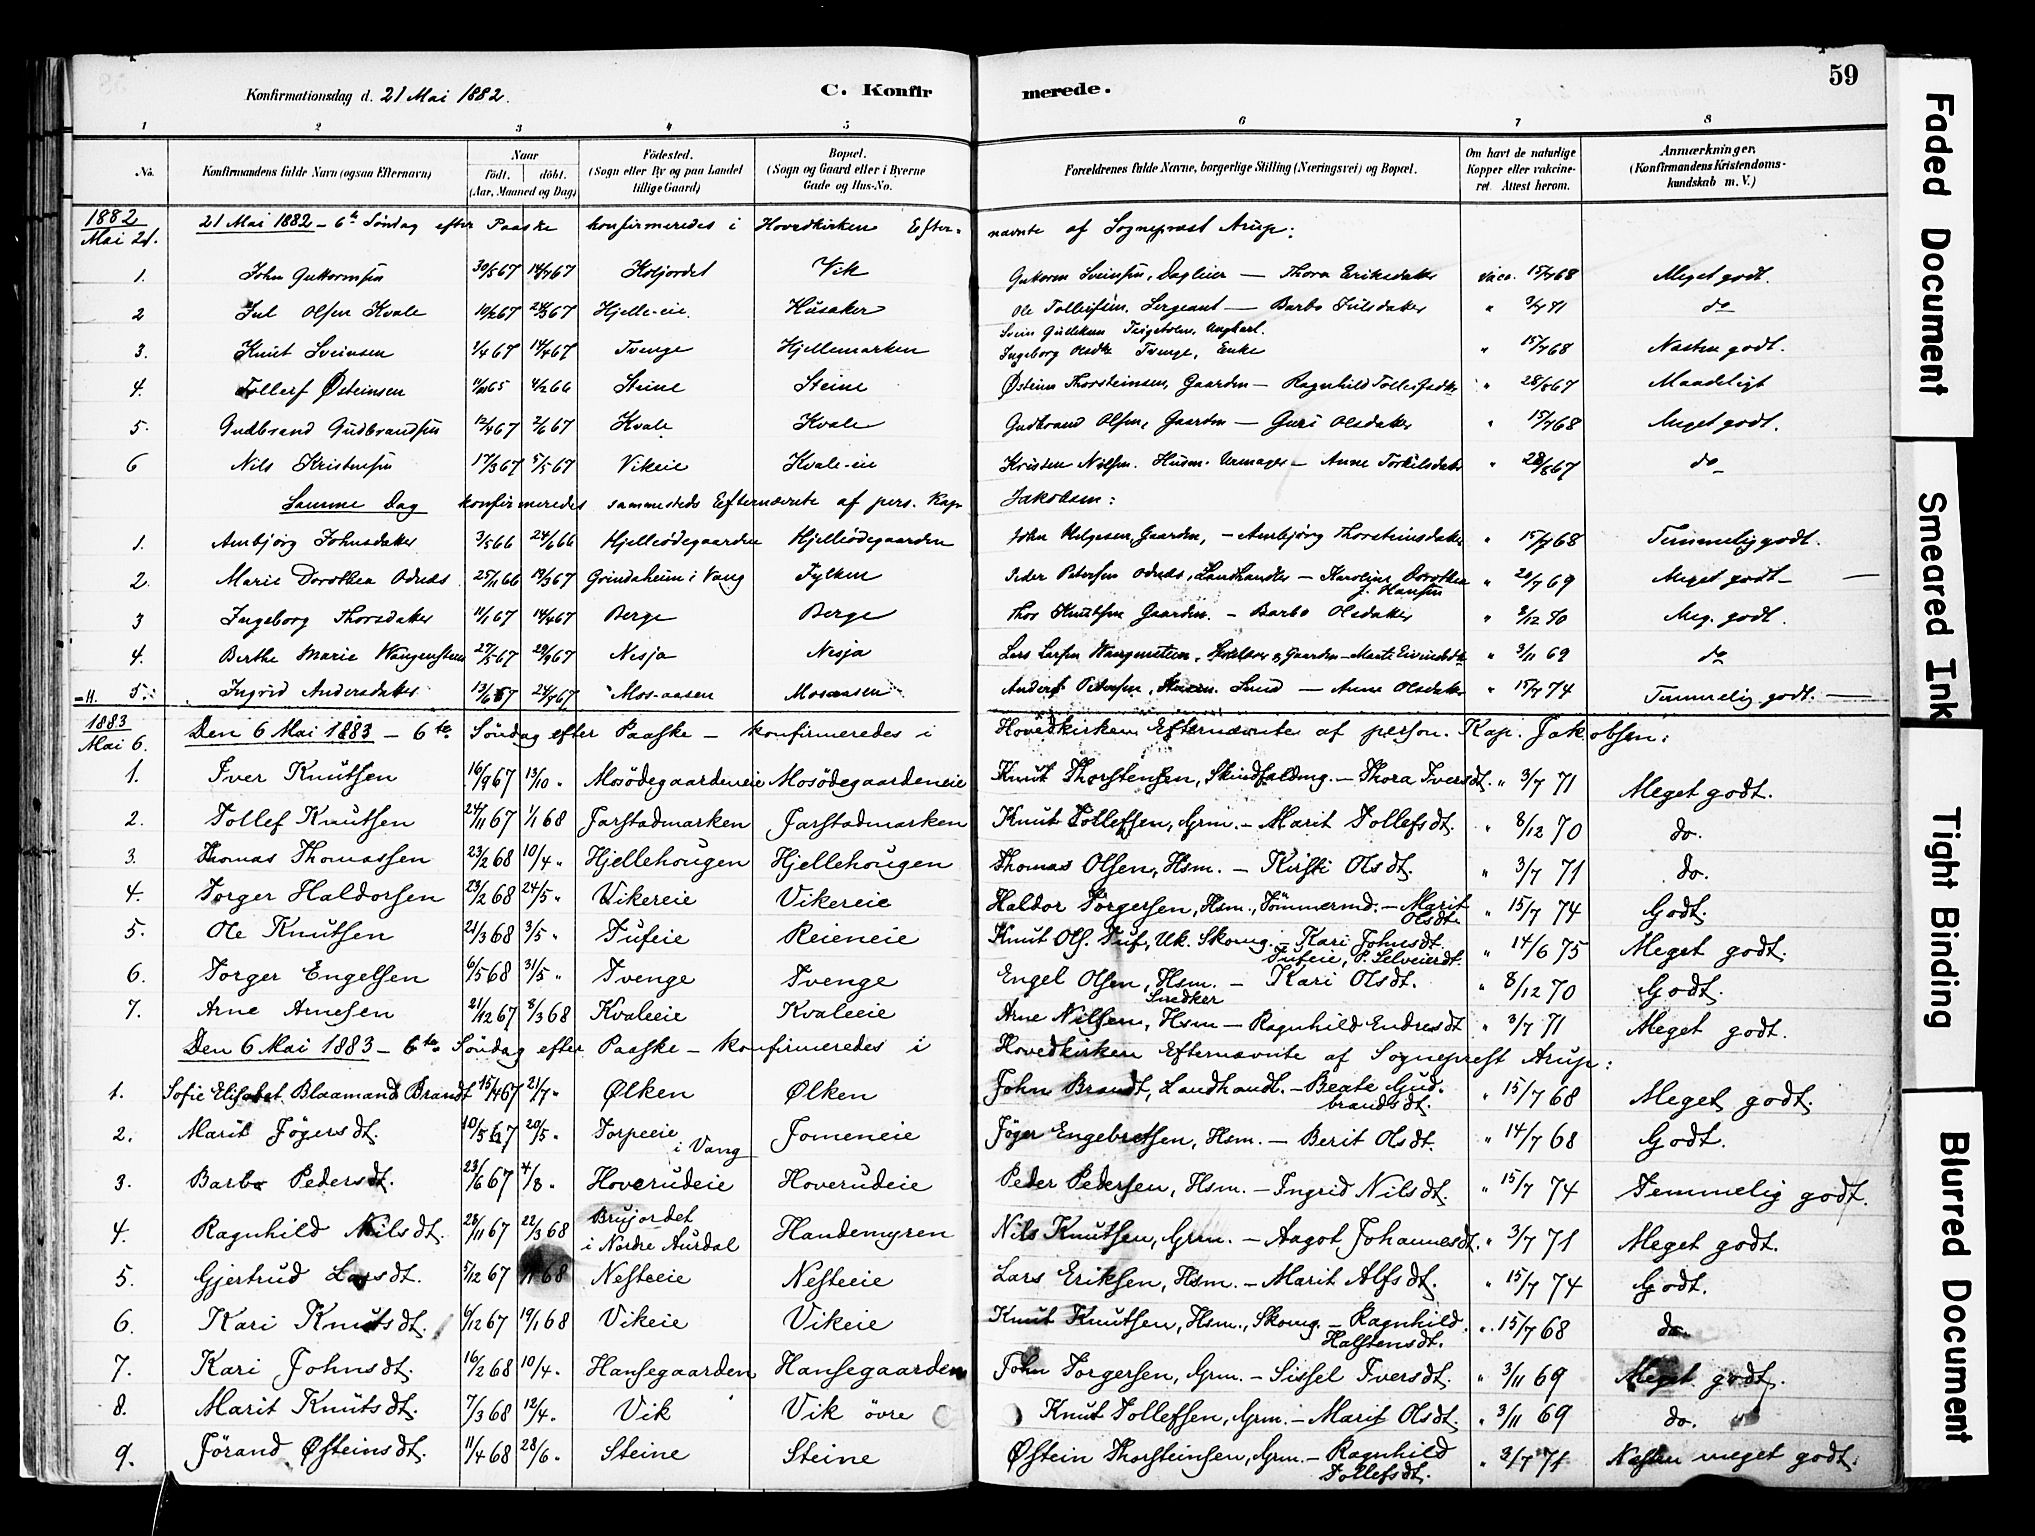 59
Konfirmationsdag d. 21 Mai 1882.
C. Konfir merede.
1 2 3 4 5 6 7 8
No. Konfirmandens fulde Navn (ogsaa Efternavn) Naar födt. döbt. (Aar, Maaned og Dag) Födested. (Sogn eller By og paa Landet tillige Gaard) Bopæl. (Sogn og Gaard eller i Byerne Gade og Hus-No. Forældrenes fulde Navne, borgerlige Stilling (Næringsvei) og Bopæl. Om havt de naturlige Kopper eller vakcineret. Attest herom. Anmærkninger. (Konfirmandens Kristendomskundskab m. V.)
1882 Mai 21. 21 Mai 1882 - 6te Söndag efter Paaske konfirmeredes i Hovedkirken Efter- nævnte af Sognepræst Arup:
1. John Guttormsen 30/5 67 14/7 67 Koljordet Vik Guttorm Sveinsen, Dagleier - Thora Eriksdatter vacc. 15/7 68 Meget godt.
2 Jul Olsen Kvale 10/2 67 24/3 67 Hjelle-eie. Husaker Ole Tollefsen, Sergeant - Barbo Julsdatter " 3/7 71 do
3. Knut Sveinsen 1/4 67 14/4 67 Tvenge Hjellemarken Svein Gulliksen Teigebolen, Ungkarl. Ingeborg Olsdtr Tvenge, Enke " 15/7 68 Næsten godt.
4. Tollerf Østeinsen 11/11 65 4/2 66 Steine Steine Østein Thorsteinsen, Gaardm - Ragnhild Tollefsdtr " 28/8 67 Maadeligt
5. Gudbrand Gudbrandsen 12/4 67 2/6 67 Kvale Kvale Gudbrand Olsen, Gaardm - Guri Olsdatter " 15/7 68 Meget godt.
6 Nils Kristensen 17/3 67 5/5 67 Vikeie Kvale-eie Kristen Nilsen. Husm. Urmager - Anne Torkilsdatter " 28/8 67 do
Samme Dag konfirmeredes sammesteds Efternævnte af pers. Kap. Jakobsen:
1. Ambjörg Johnsdatter 3/5 66 24/6 66 Hjelleödegaarden Hjelleödegaarden John Helgesen, Gaardm, - Ambjörg Thorsteinsdatter " 15/7 68 Temmelig godt.
2. Marie Dorothea Odnæs 25/11 66 19/3 67 Grindaheim i Vang Fylken Peder Petersen Odnæs, Landhandler - Karoline Dorothea J. Hansen " 20/7 69 Meget godt -
3 Ingeborg Thorsdatter 11/1 67 14/4 67 Berge Berge Thor Knutsen Gaardm. - Barbo Olsdatter " 8/12 70 Meg. godt.
4. Berthe Marie Wangensteen 27/5 67 29/9 67 Nesja Nesja Lars Larsen Wangensteen, Gaardm - Marit Eivindsdtr " 3/11 69 do
=H. 5. Ingrid Andersdatter 13/6 67 24/8 67 Mos-aasen Mosaasen Anders Petersen, Husm. Smed - Anne Olsdatter " 15/7 74 Temmelig godt. -
1883 Mai 6. Den 6 Mai 1883 - 6te. Söndag efter Paaske - konfirmeredes i Hovedkirken Efternævnte af person. Kap. Jakobsen:
1. Iver Knutsen 16/9 67 13/10 " Mosödegaardeneie Mosödegaardeneie Knut Thorstensen, Skindfaldmg. - Thora Iversdt. " 3/7 71 Meget godt.
2. Tollef Knutsen 24/11 67 1/1 68 Jarstadmarken Jarstadmarken Knut Tollefsen, Grm. - Marit Tollefsdt. " 8/12 70 do.
3. Thomas Thomassen 23/2 68 10/4 " Hjellehougen Hjellehougen Thomas Olsen, Hsm. - Kirsti Olsdt. " 3/7 71 do.
4. Torger Haldorsen 23/2 68 24/5 " Vikereie Vikereie Haldor Torgersen, Hsm., Tömmermd. - Marit Olsdt. " 15/7 74 Godt.
5. Ole Knutsen 21/3 68 3/5 " Tufeie Reieneie Knut Ols. Tuf, Uk. Skomg. - Kari Johnsdt. Tufeie, P. Selveierdt. " 14/6 75 Meget godt.
6. Torger Engelsen 6/5 68 31/5 " Tvenge Tvenge Engel Olsen, Hsm. - Kari Olsdt. " 8/12 70 Godt.
7. Arne Arnesen 21/12 67 8/3 68 Kvaleeie Kvaleeie Arne Nilsen, Hsm Snedker - Ragnhild Endresdt " 3/7 71 Meget godt.
Den 6 Mai 1883 - 6te. Söndag efter Paaske - konfirmeredes i Hovedkirken Efternævnte af Sogneprest Arup:
1. Sofie Elisabet Blaamand Brandt 15/4 67 21/7 " Ølken Ølken John Brandt, Landhandl. - Beate Gudbrandsdt. " 15/7 68 Meget godt.
2. Marit Jögersdt. 10/5 67 20/5 " Torpeeie i Vang Jomeneie Jöger Engebretsen, Hsm. - Berit Olsdt. " 14/7 68 Godt.
3. Barbo Pedersdt. 23/6 67 4/8 " Hoverudeie Hoverudeie Peder Pedersen, Hsm. - Ingrid Nilsdt. " 15/7 74 Temmelig godt.
4. Ragnhild Nilsdt. 28/11 67 22/3 68 Brujordet i Nordre Aurdal Handemyren Nils Knutsen, Grm. - Aagot Johannesdt. " 3/7 71 Meget godt.
5. Gjertrud Larsdt. 5/12 67 68 Nesteeie Nesteeie Lars Eriksen, Hsm. - Marit Alfsdt. " 15/7 74 Godt.
6. Kari Knutsdt. 6/12 67 19/1 68 Vikeie Vikeie Knut Knutsen, Hsm., Skomg. - Ragnhild Halstensdt. " 15/7 68 do.
7. Kari Johnsdt. 16/2 68 10/4 " Hansegaarden Hansegaarden John Torgersen, Grm. - Sissel Iversdt. " 3/11 69 Meget godt.
8. Marit Knutsdt. 7/3 68 12/4 " Vik Vik övre Knut Tollefsen, Grm. - Marit Olsdt. " 3/11 69 do.
9. Jörand Østeinsdt. 11/4 68 28/6 " Steine Steine Østein Thorsteinsen, Grm. - Ragnhild Tollefsdt. " 3/7 71 Næsten meget godt.
Faded Document
Smeared Ink
Tight Binding
Blurred Document